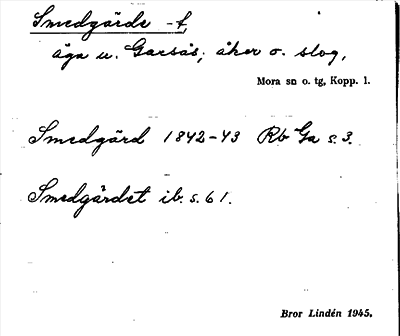 Smedgärde -t,
äga u. Garsås; åker o. slog,
Mora sn o. tg, Kopp. l.
Smedgärd 1842-43 Rb Ga s. 3.
Smedgärdet ib. s. 61.
Bror Lindén 1945.